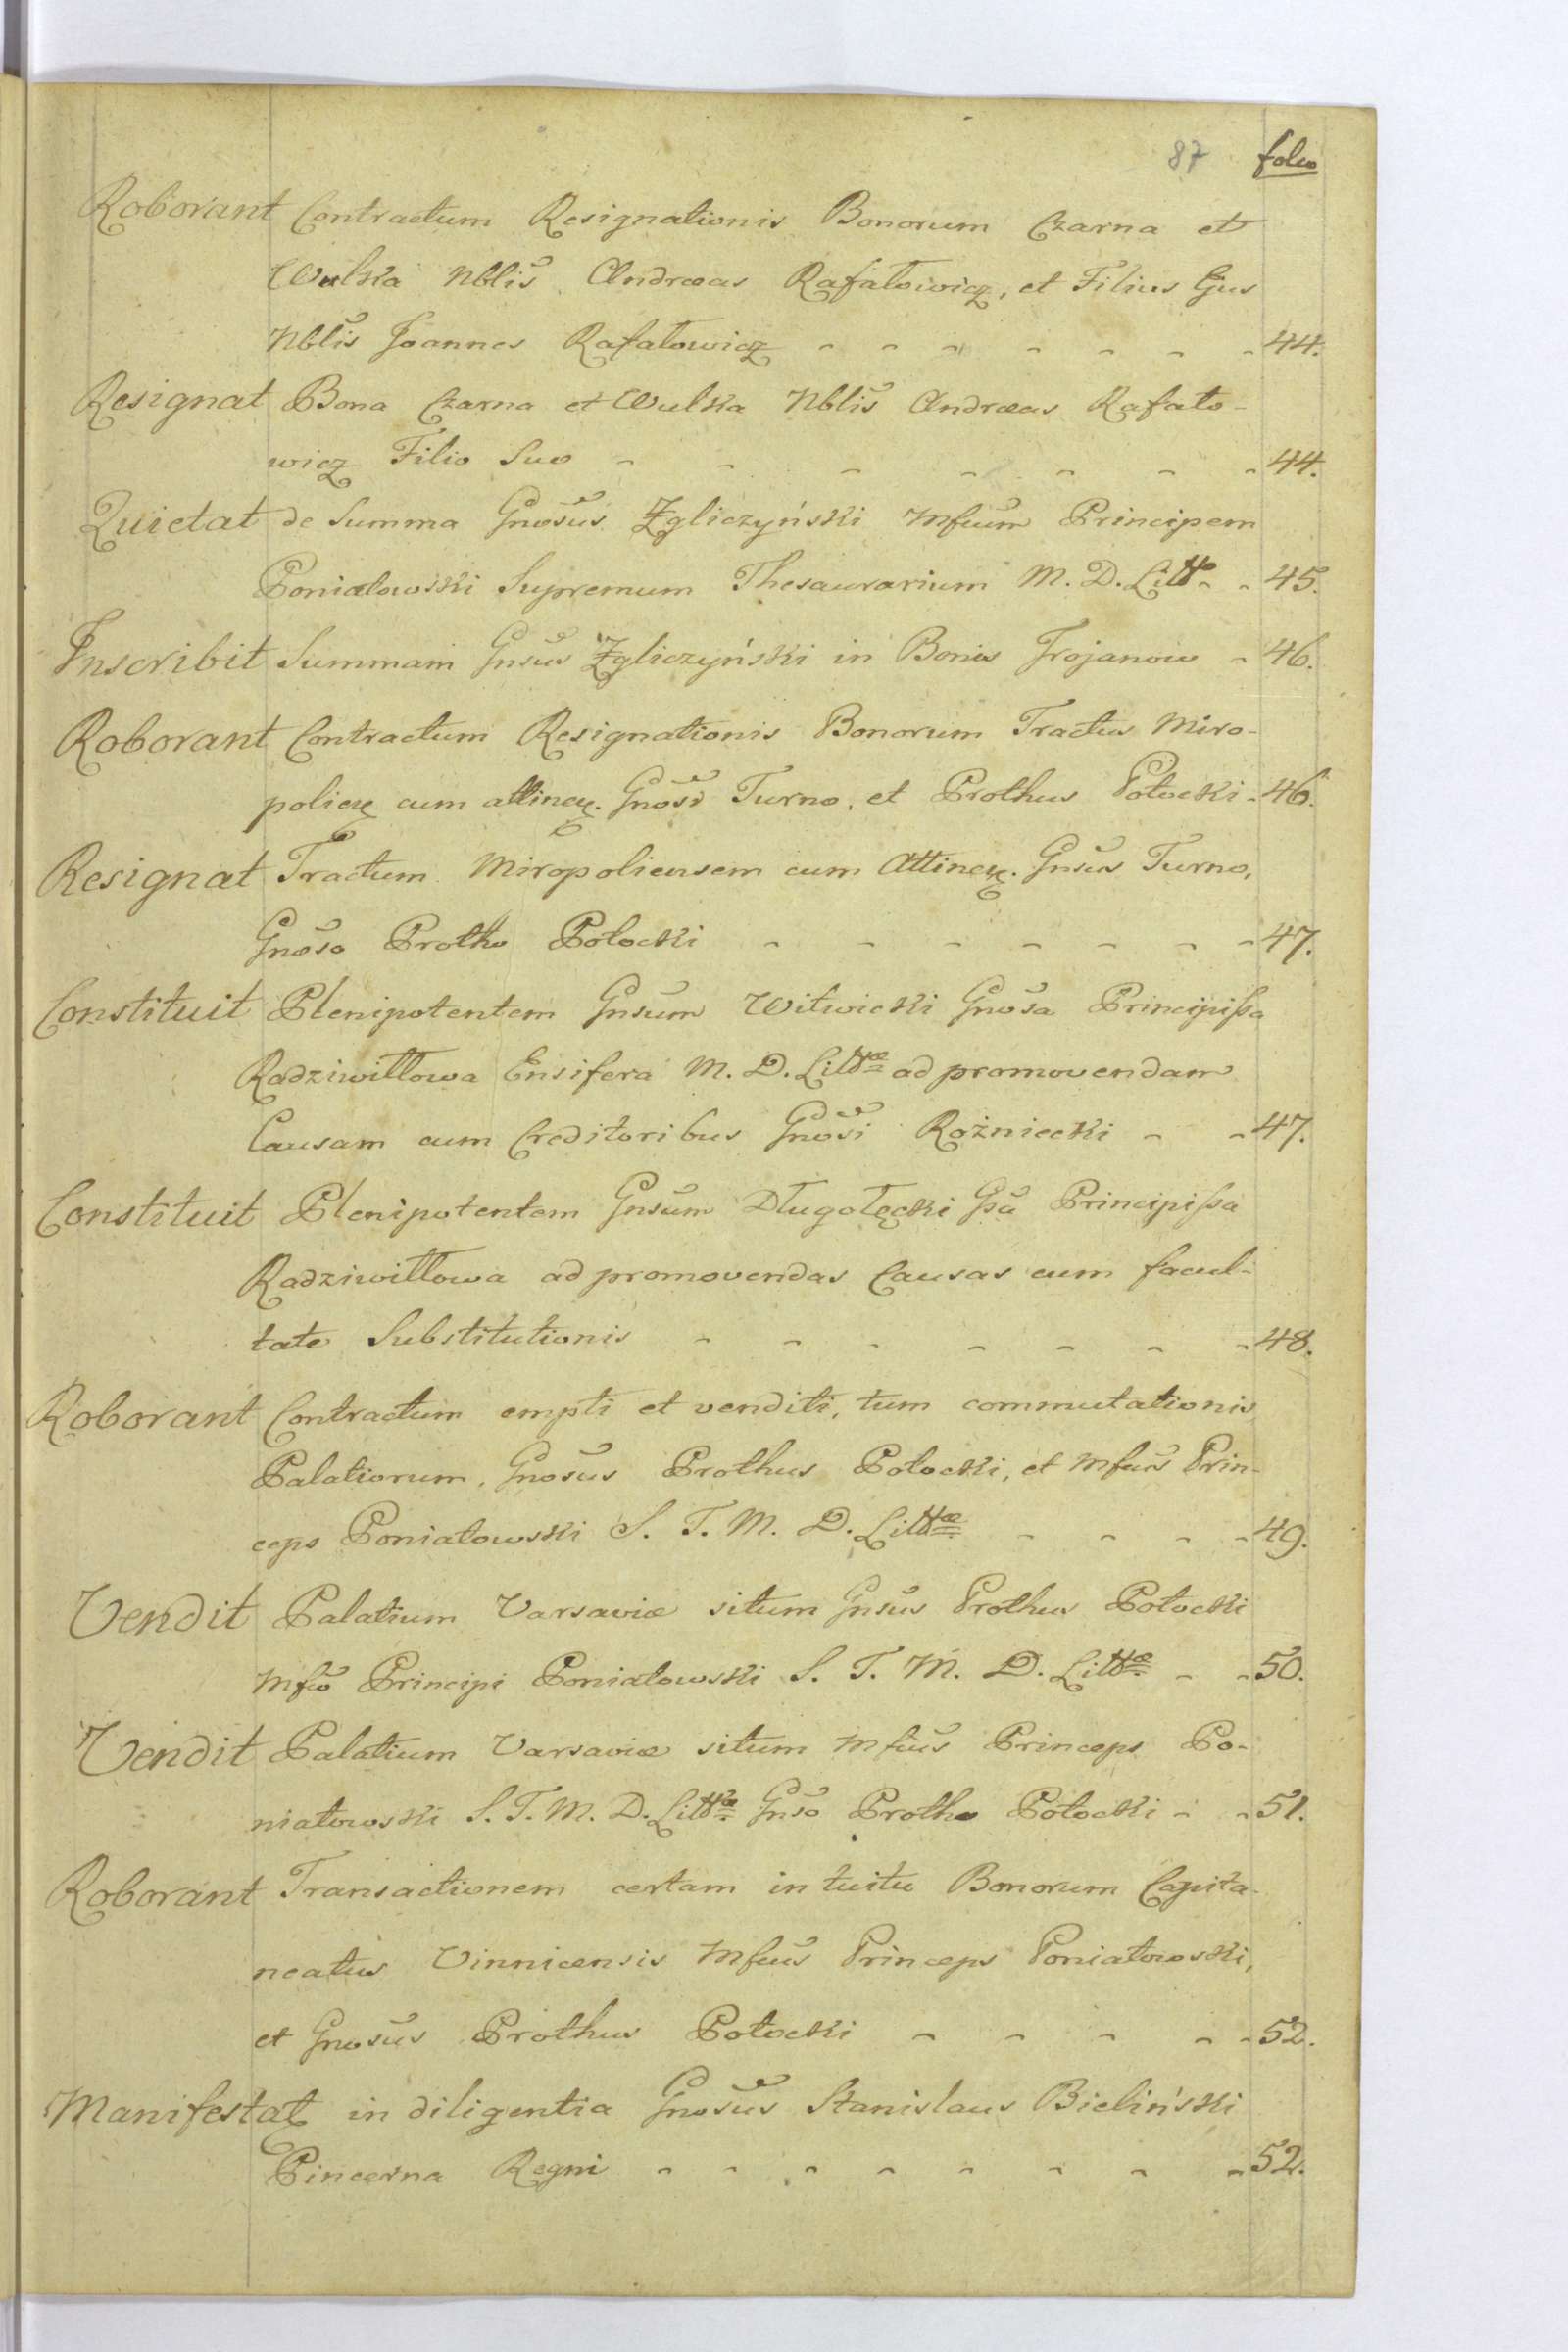 87 folio
Roborant Contractum Resignationis Bonorum Czarna et
Wulka Nblis Andreas Rafałowicz, et Filius Ejus
Nblis Joannes Rafałowicz - - - - - - - 44.
Resignat Bona Czarna et Wulka Nblis Andreas Rafało-
wicz Filio Suo - - - - - - - 44.
Quietat de Summa Gnosus Zgliczyński Mfcum Principem
Poniatowski Supremum Thesaurarium M. D. Litt - - 45.
Inscribit Summam Gnsus Zgliczyński in Bonis Trojanow - 46.
Roborant Contractum Resignationis Bonorum Tractus Miro-
policn cum attinen. Gnosi Turno, et Prothus Potocki - 46.
Resignat Tractum Miropoliensem cum Attinen. Gnsus Turno,
Gnoso Protho Potocki - - - - - - - 47.
Constituit Plenipotentem Gnsum Witwicki Gnosa Principissa
Radziwiłłowa Ensifera M. D. Littæ ad promovendam
Causam cum Creditoribus Gnosi Rożniecki - - 47.
Constituit Plenipotentem Gnsum Długołęcki Gsa Principissa
Radziwiłłowa ad promovendas Causas cum facul-
tate Substitutionis - - - - - - - 48.
Roborant Contractum empti et venditi, tum commutationis
Palatiorum, Gnosus Prothus Potocki, et Mfcus Prin-
ceps Poniatowski S. T. M. D. Littæ - - - - 49.
Vendit Palatium Varsaviæ situm Gnsus Prothus Potocki
Mfco Principi Poniatowski S. T. M. D. Littæ - - 50.
Vendit Palatium Varsaviæ situm Mfcus Princeps Po-
niatowski S. T. M. D. Littæ Gnso Protho Potocki - - 51.
Roborant Transactionem certam intuitu Bonorum Capita-
neatus Vinnicensis Mfcus Princeps Poniatowski,
et Gnosus Prothus Potocki - - - - - 52.
Manifestat in diligentia Gnosus Stanislaus Bieliński
Pincerna Regni - - - - - - - - 52.